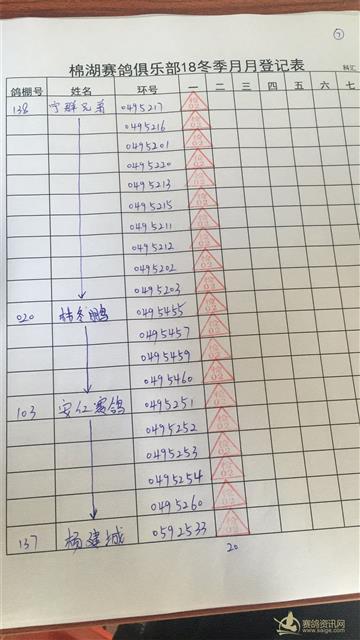 7
棉湖赛鸽俱乐部18冬季月月登记表
科汇
鸽棚号 姓名 环号 一 二 三 四 五 六 七
138 宁群兄弟 0495217
0495216
0495201
0495220
0495213
0495215
0495211
0495212
0495202
0495203
020 林冬鹏 0495455
0495457
0495459
0495460
103 安仁赛鸽 0495251
0495252
0495253
0495254
0495260
137 杨建城 0592533
20
赛鸽资讯网
www.saige.com